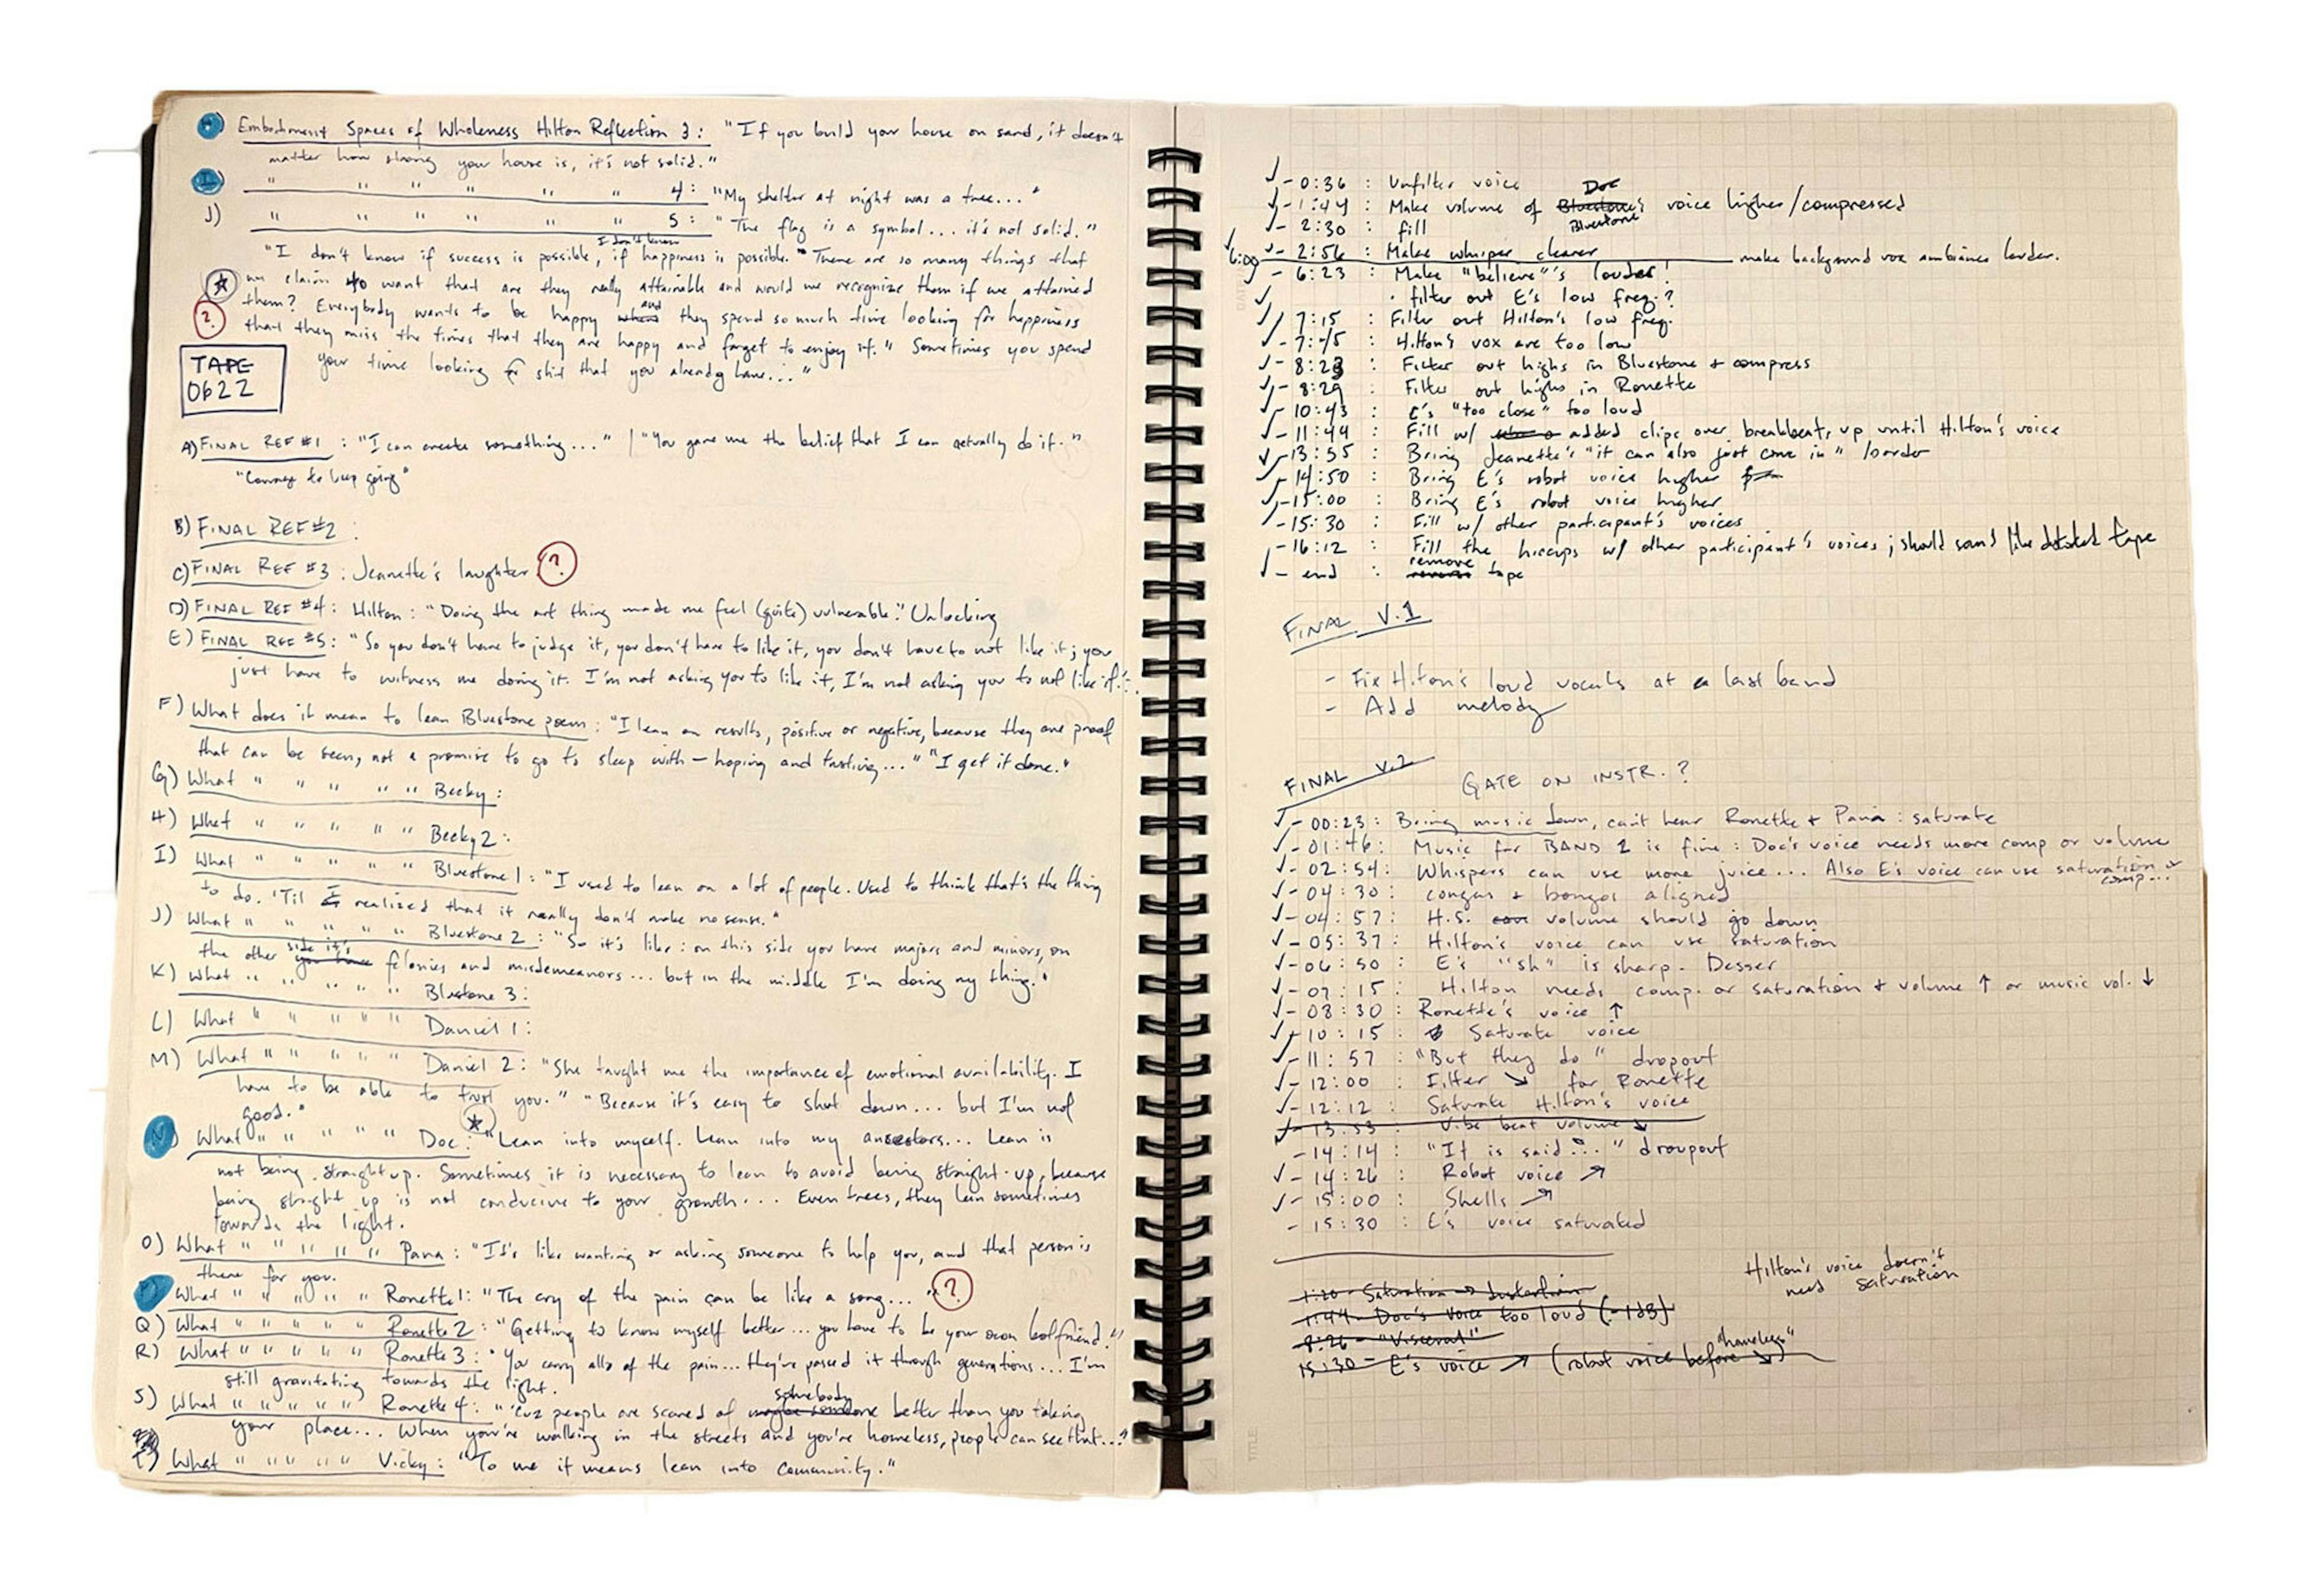 H) Embodiment Spaces of Wholeness Hilton Reflection 3: "If you build your house on sand, it doesn't
matter how strong your house is, it's not solid."
I) " " " " " " 4: "My shelter at night was a tree..."
J) " " " " " " 5: "The flag is a symbol... it's not solid."
"I don't know if success is possible, I don't know if happiness is possible." "There are so many things that
we claim to want that are they really attainable and would we recognize them if we attained
them? Everybody wants to be happy when and they spend so much time looking for happiness
that they miss the times that they are happy and forget to enjoy it." Sometimes you spend
your time looking for shit that you already have..."
?
TAPE
0622
A) FINAL REF #1 : "I can create something..." | "You gave me the belief that I can actually do it."
"Courage to keep going"
B) FINAL REF #2 :
C) FINAL REF #3 : Jeanette's laughter ?
D) FINAL REF #4 : Hilton: "Doing the art thing made me feel (quite) vulnerable." Unlocking
E) FINAL REF #5 : "So you don't have to judge it, you don't have to like it, you don't have to not like it; you
just have to witness me doing it. I'm not asking you to like it, I'm not asking you to not like it."
F) What does it mean to lean Bluestone poem : "I lean on results, positive or negative, because they are proof
that can be seen, not a promise to go to sleep with - hoping and trusting..." "I get it done."
G) What " " " " " Becky :
H) What " " " " " Becky 2 :
I) What " " " " " Bluestone 1 : "I used to lean on a lot of people. Used to think that's the thing
to do. 'Til I realized that it really don't make no sense."
J) What " " " " " Bluestone 2 : "So it's like: on this side you have majors and minors, on
the other side it's you have felonies and misdemeanors... but in the middle I'm doing my thing."
K) What " " " " " Blustone 3 :
L) What " " " " " Daniel 1 :
M) What " " " " " Daniel 2 : "She taught me the importance of emotional availability. I
have to be able to trust you." "Because it's easy to shut down... but I'm not
good."
N) What " " " " " Doc : "Lean into myself. Lean into my ancestors... Lean is
not being straight up. Sometimes it is necessary to lean to avoid being straight-up, because
being straight up is not conducive to your growth... Even trees, they lean sometimes
towards the light.
O) What " " " " " Pana : "It's like wanting or asking someone to help you, and that person is
there for you.
What " " " " " Ronette 1: "The cry of the pain can be like a song..." ?
Q) What " " " " " Ronette 2 : "Getting to know myself better... you have to be your own bolfriend."
R) What " " " " " Ronette 3 : "You carry all of the pain... they've passed it through generations... I'm
still gravitating towards the light.
S) What " " " " " Ronette 4 : "'Cuz people are scared of maybe someone somebody better than you taking
your place... When you're walking in the streets and you're homeless, people can see that..."
T) What " " " " " Vicky : "To me it means lean into community."
- 0:36 : Unfilter voice
- 1:44 : Make volume of Bluestone's Doc Bluestone voice higher/compressed
- 2:30 : fill
- 2:56 : Make whisper clearer
6:00 make background vox ambiance louder.
- 6:23 : Make "believe"'s louder!
· filter out E's low freq.?
- 7:15 : Filter out Hilton's low freq.
- 7:45 : Hilton's vox are too low
- 8:23 : Filter out highs in Bluestone + compress
- 8:29 : Filter out highs in Ronette
- 10:43 : E's "too close" too loud
- 11:44 : Fill w/ added clips over breakbeats, up until Hilton's voice
- 13:55 : Bring Jeanette's "it can also just come in" louder
- 14:50 : Bring E's robot voice higher
- 15:00 : Bring E's robot voice higher
- 15:30 : Fill w/ other participant's voices
- 16:12 : Fill the hiccups w/ other participant's voices; should sound like dotted tape
- end : reverse remove tape
FINAL V.1
- Fix Hilton's loud vocals at a last band
- Add melody
FINAL V.2
GATE ON INSTR. ?
- 00:23 : Bring music down, can't hear Ronette + Pana : saturate
- 01:46 : Music for BAND 2 is fine : Doc's voice needs more comp or volume
- 02:54 : Whispers can use more juice... Also E's voice can use saturation + comp...
- 04:30 : congas + bongos aligned
- 04:57 : H.S. volume should go down
- 05:37 : Hilton's voice can use saturation
- 06:50 : E's "sh" is sharp. Desser
- 07:15 : Hilton needs comp. or saturation + volume ↑ or music vol. ↓
- 08:30 : Ronette's voice ↑
- 10:15 : Saturate voice
- 11:57 : "But they do" dropout
- 12:00 : Filter ↘ for Ronette
- 12:12 : Saturate Hilton's voice
- 13:53 : Vibe beat volume ↘
- 14:14 : "It is said..." dropout
- 14:26 : Robot voice ↗
- 15:00 : Shells ↗
- 15:30 : E's voice saturated
Hilton's voice doesn't
need saturation
1:20 - Saturation → Distortion
1:44 - Doc's voice too loud (-1dB)
8:26 - "Visceral"
15:30 - E's voice ↗ (robot voice before "homeless" ↘)